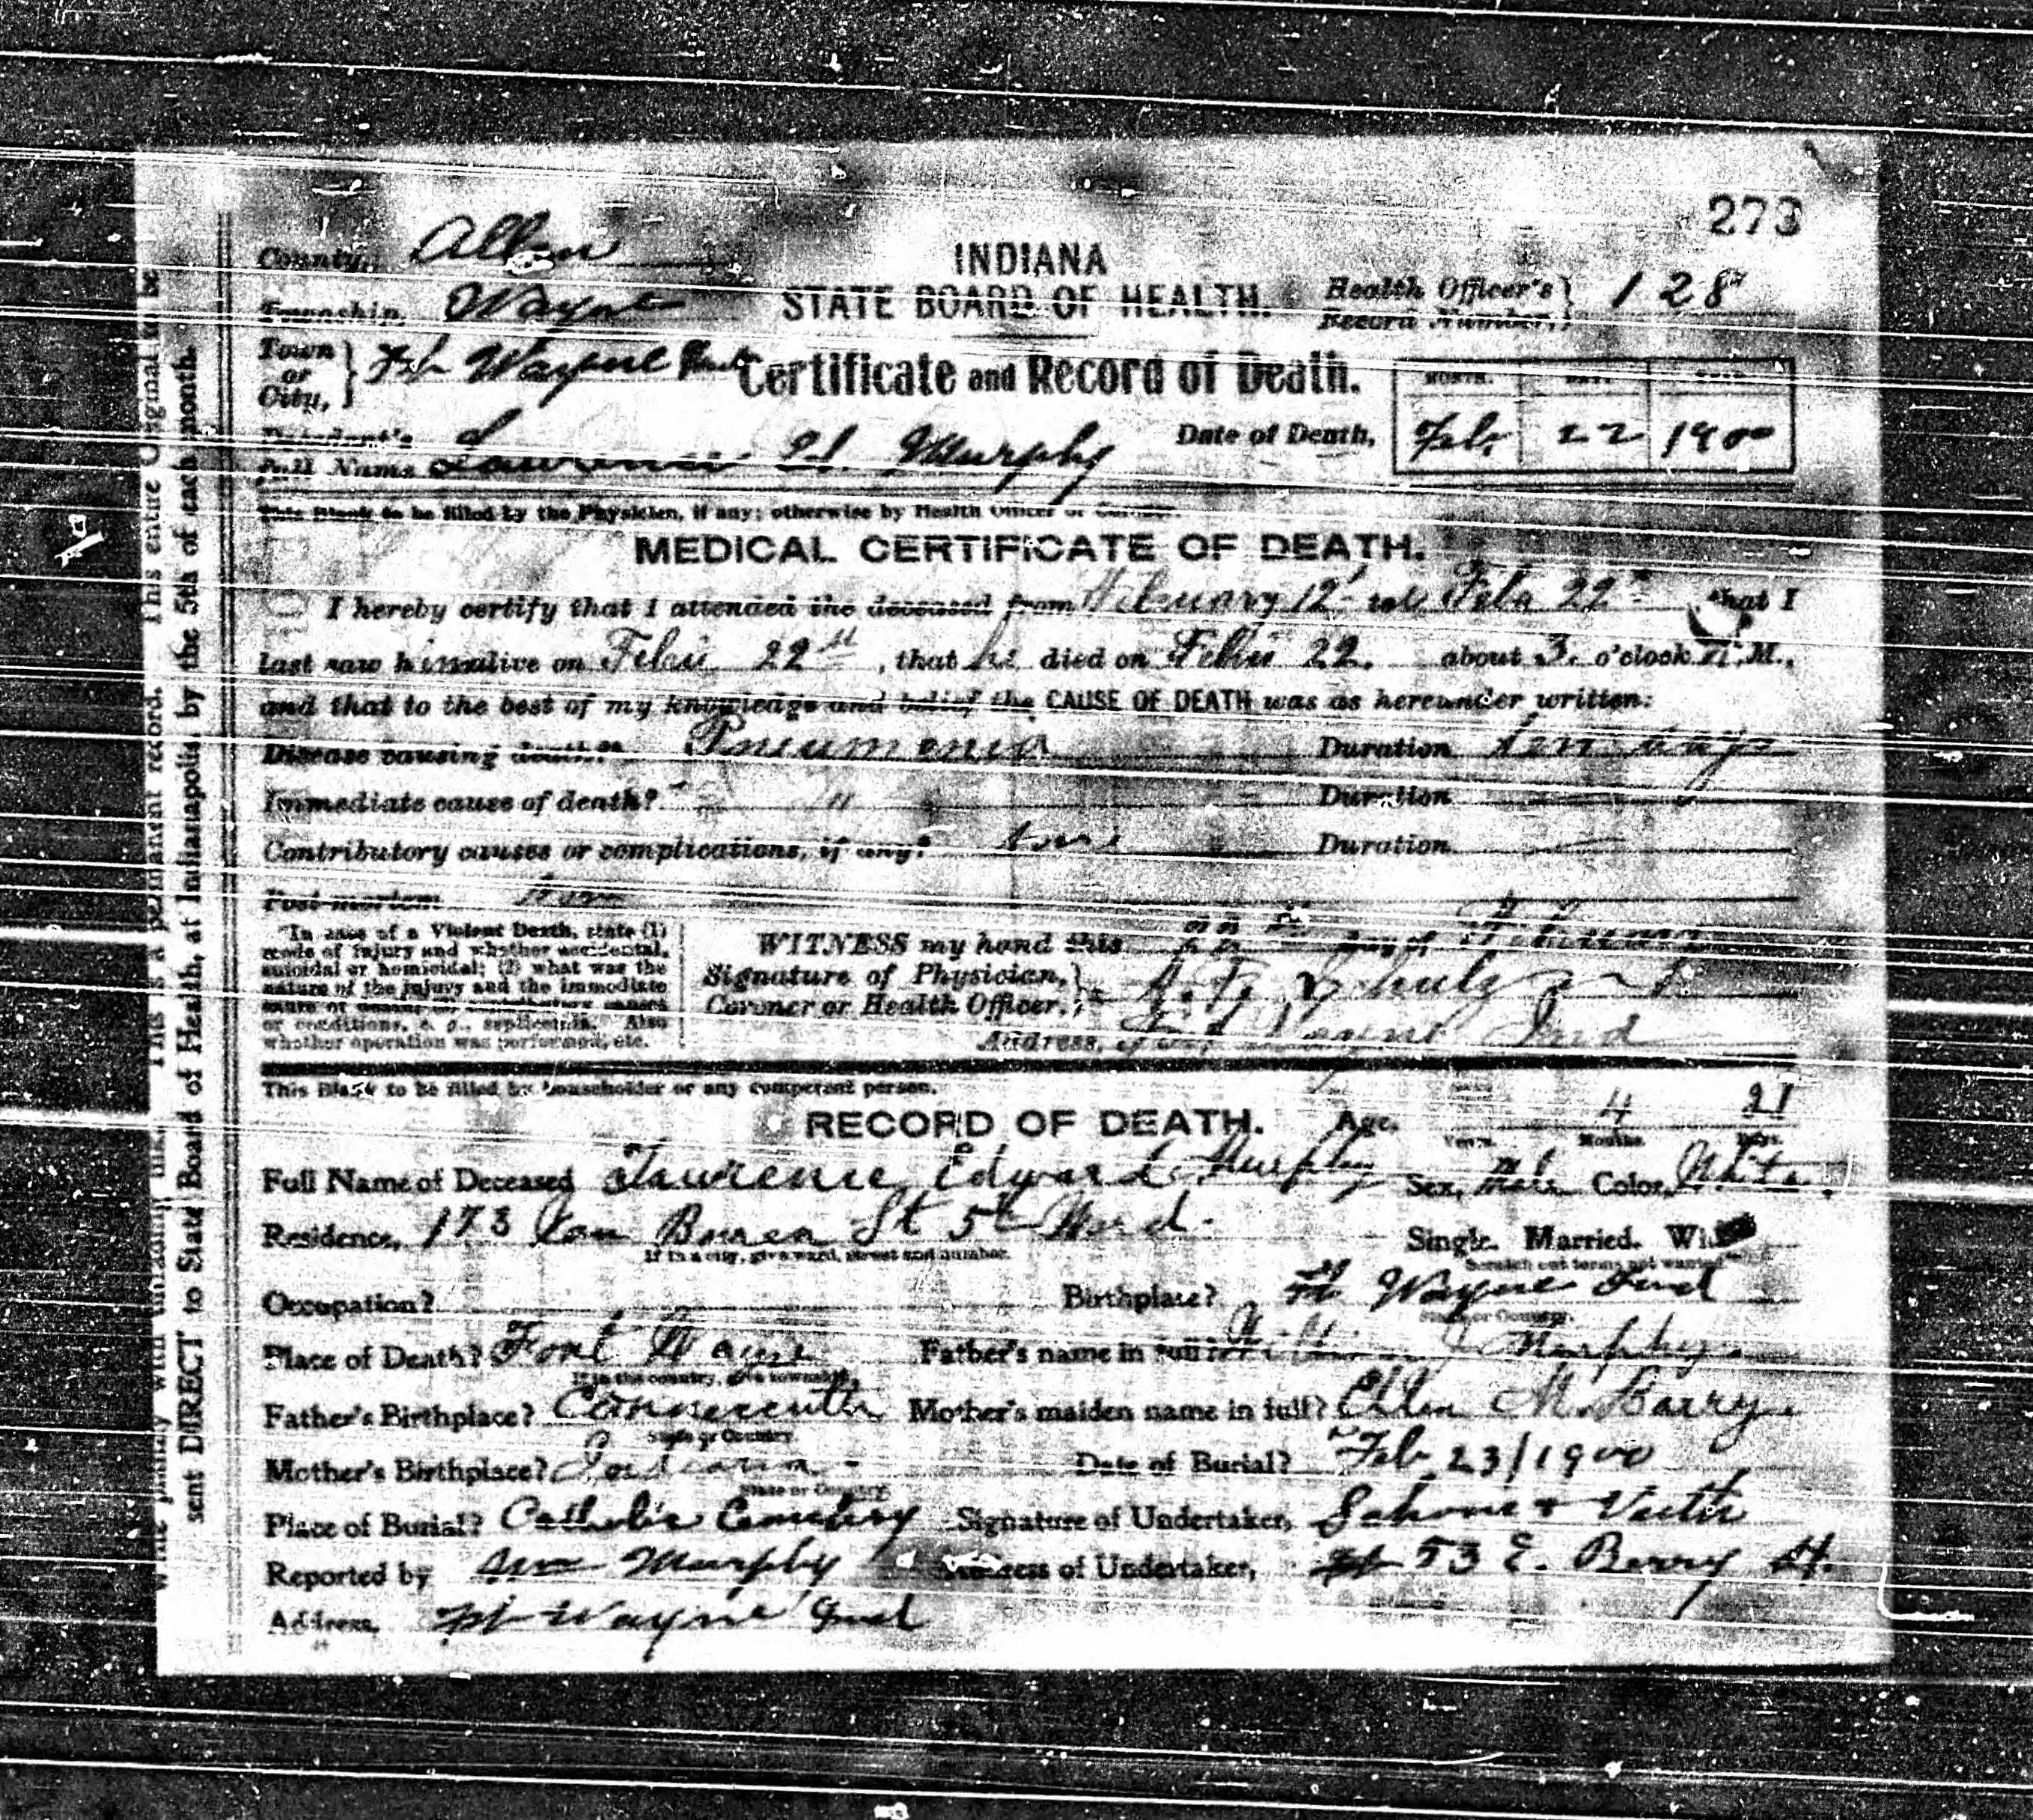 273
County, Allen
INDIANA
STATE BOARD OF HEALTH.
Health Officer's Record Number, 128
Township, Wayne
Town or City, Ft Wayne
Certificate and Record of Death.
MONTH. DAY. YEAR.
Decedent's Full Name Lawrence Ed. Murphy
Date of Death, Feb. 22 1900
This Blank to be filled by the Physician, if any; otherwise by Health Officer or Coroner.
MEDICAL CERTIFICATE OF DEATH.
I hereby certify that I attended the deceased from February 12 to Feb 22 that I
last saw him alive on 22 , that he died on 22. about 3. o'clock M.,
and that to the best of my knowledge and belief the CAUSE OF DEATH was as hereunder written:
Disease causing death?* Pneumonia Duration ten days
Immediate cause of death? " Duration
Contributory causes or complications, if any? Duration
Post-mortem
*In case of a Violent Death, state (1)
mode of injury and whether accidental,
suicidal or homicidal; (2) what was the
nature of the injury and the immediate
cause of death; (3) contributory causes
or conditions, e. g., septicemia. Also
whether operation was performed, etc.
WITNESS my hand this 22 day of
Signature of Physician, Coroner or Health Officer,
Address, Fort Wayne Ind
This Blank to be filled by householder or any competent person.
RECORD OF DEATH. Age, Years. 4 Months. 21 Days.
Full Name of Deceased Lawrence Edward Murphy Sex, Male Color, White.
Residence, 173 Van Buren St 5th Ward.
If in a city, give ward, street and number.
Single. Married.
Scratch out terms not wanted
Occupation?
Birthplace? Ft Wayne Ind
State or Country.
Place of Death? Fort Wayne
If in the country, give township.
Father's name in full? William J Murphy
Father's Birthplace? Connecticut
State or Country.
Mother's maiden name in full? Ellen
Mother's Birthplace? Indiana
State or Country.
Date of Burial? Feb 23/1900
Place of Burial? Catholic Cemetery
Signature of Undertaker, Schone & Veith
Reported by Wm Murphy
Address of Undertaker, 53 E. Berry St.
Address, Ft Wayne Ind
This is a permanent record. This entire Original to be
sent DIRECT to State Board of Health, at Indianapolis, by the 5th of each month.